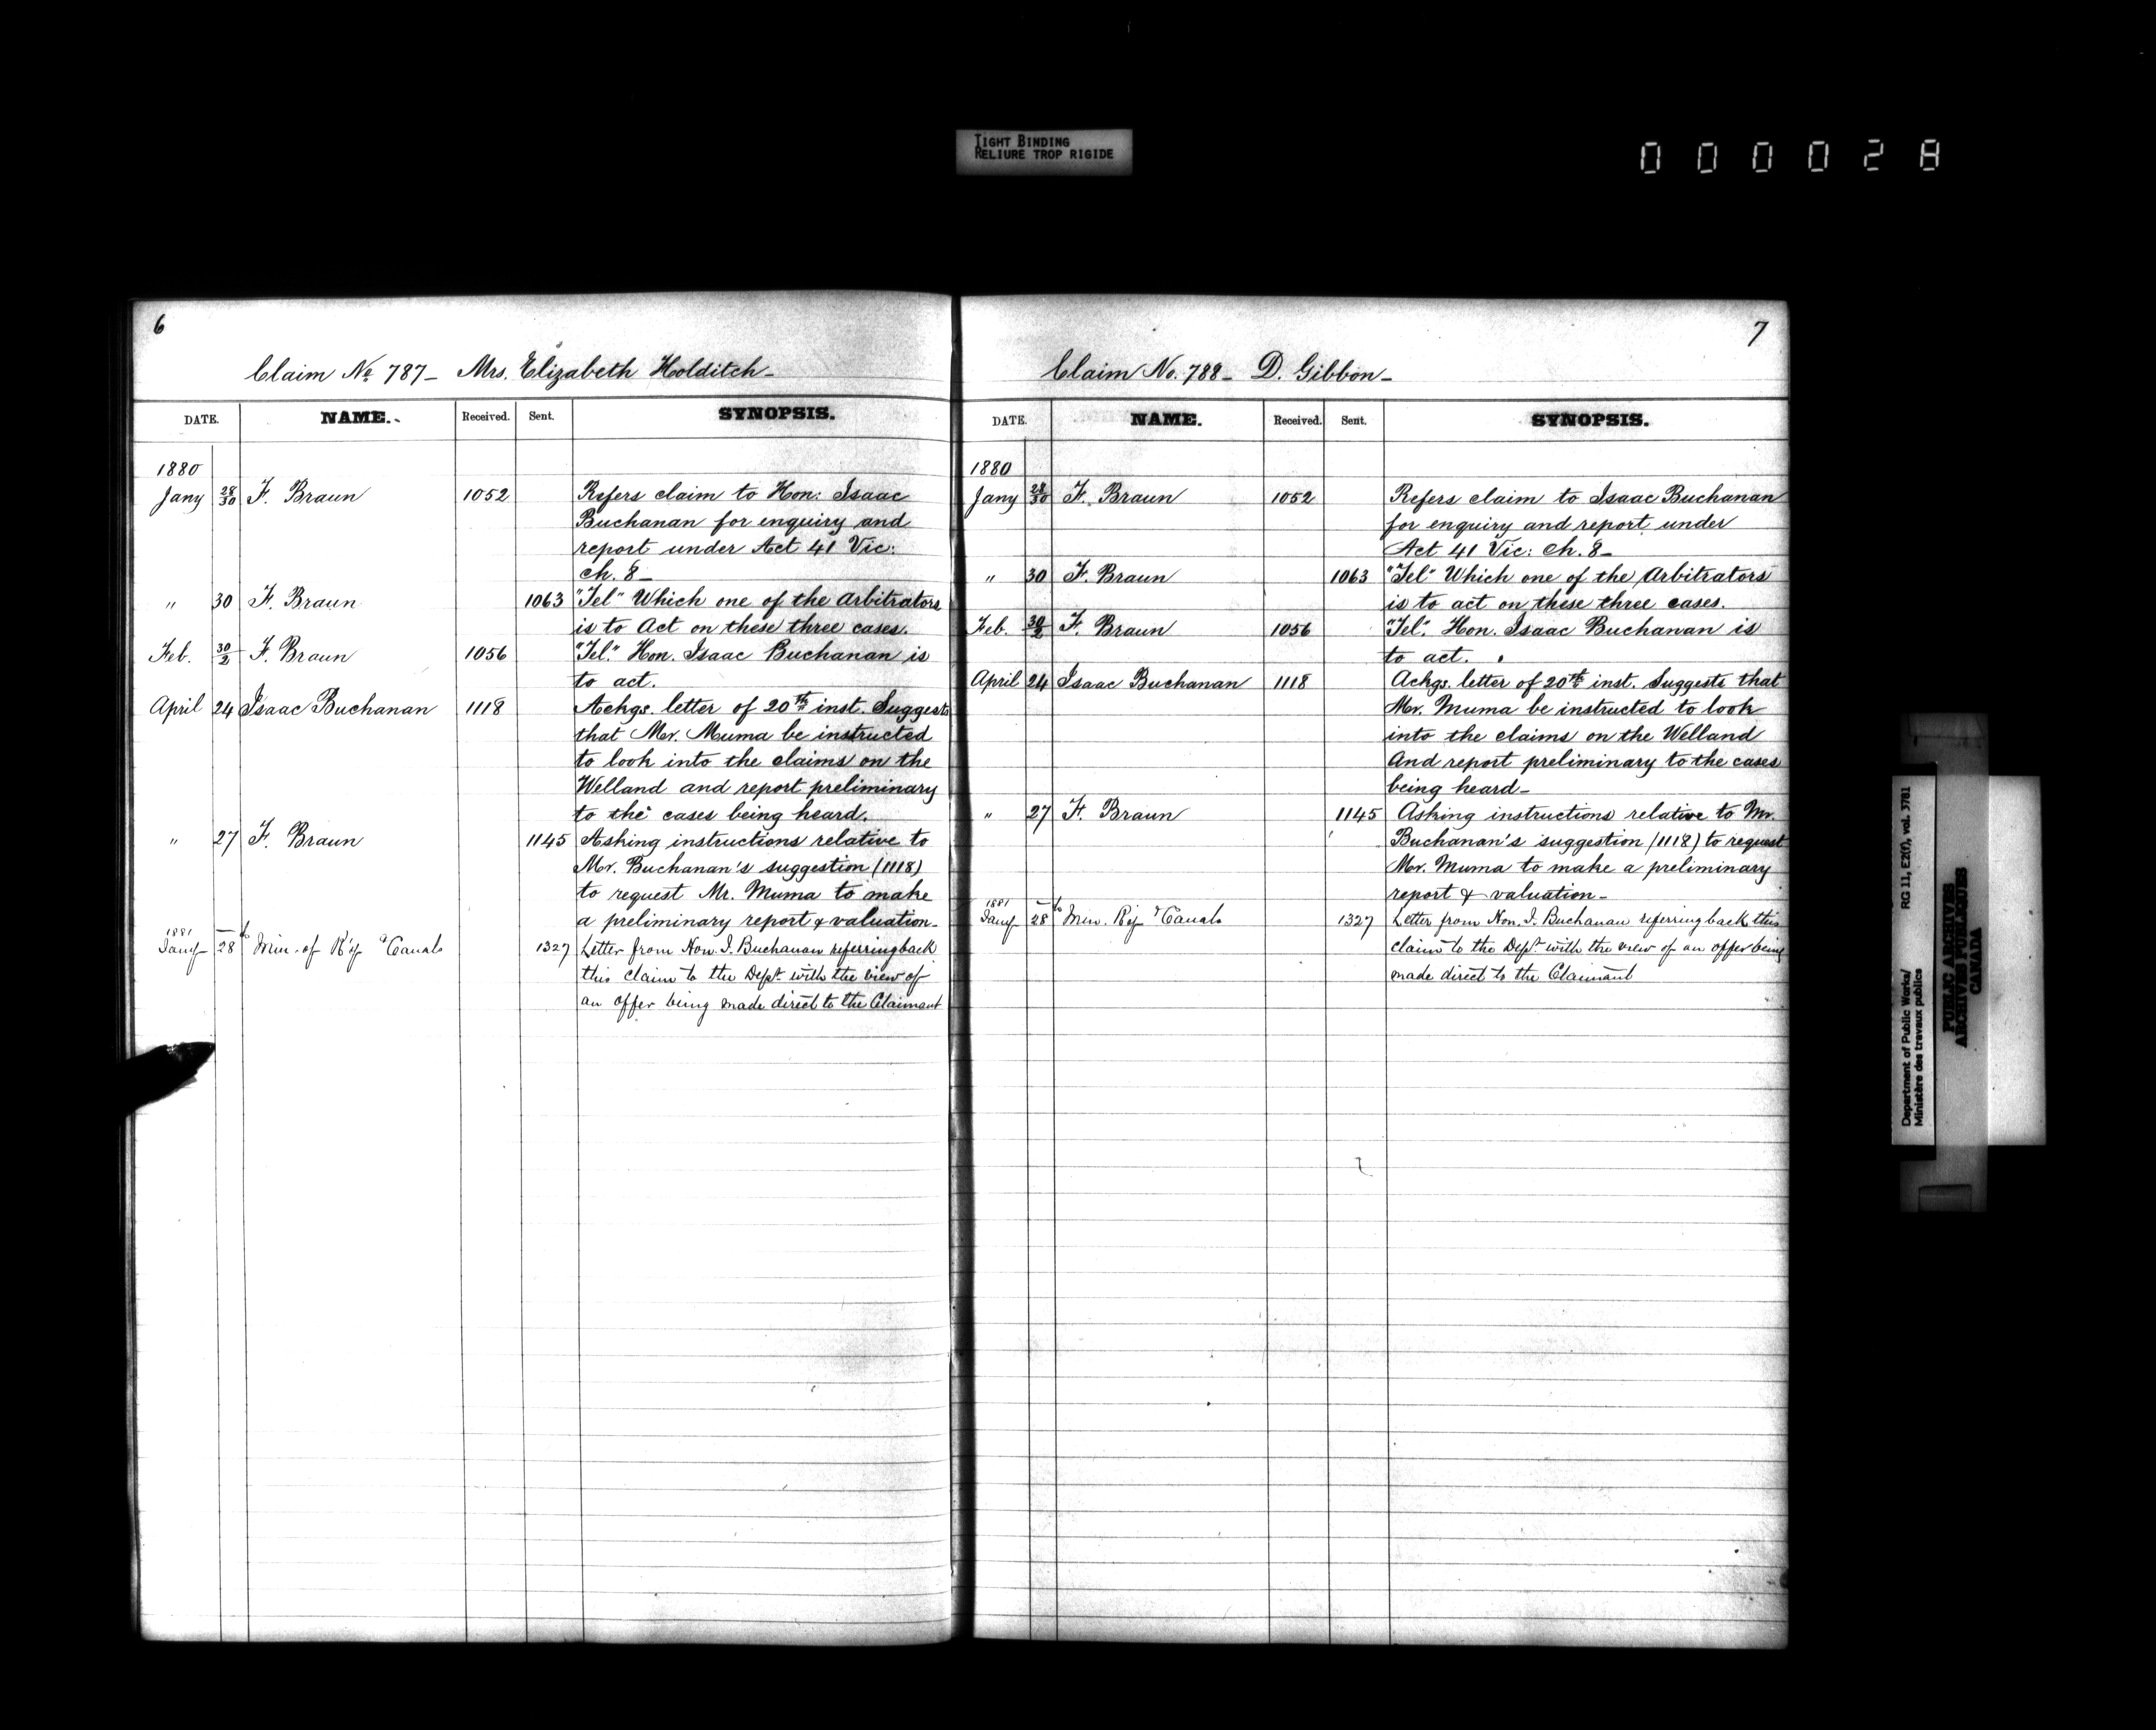 TIGHT BINDING
RELIURE TROP RIGIDE
000028
6
Claim No. 787 - Mrs. Elizabeth Holditch -
DATE. NAME. Received. Sent. SYNOPSIS.
1880
Jany 28/30 F. Braun 1052 Refers claim to Hon: Isaac
Buchanan for enquiry and
report under Act 41 Vic:
ch. 8 -
" 30 F. Braun 1063 "Tel" Which one of the Arbitrators
is to Act on these three cases.
Feb. 30/2 F. Braun 1056 "Tel." Hon. Isaac Buchanan is
to act.
April 24 Isaac Buchanan 1118 Ackgs. letter of 20th inst. Suggests
that Mr. Muma be instructed
to look into the claims on the
Welland and report preliminary
to the cases being heard.
" 27 F. Braun 1145 Asking instructions relative to
Mr. Buchanan's suggestion (1118)
to request Mr. Muma to make
a preliminary report & valuation.
1881
Jany 28 to Min. of Ry & Canals 1327 Letter from Hon. I. Buchanan referring back
this claim to the Dept. with the view of
an offer being made direct to the Claimant
7
Claim No. 788 - D. Gibbon -
DATE. NAME. Received. Sent. SYNOPSIS.
1880
Jany 28/30 F. Braun 1052 Refers claim to Isaac Buchanan
for enquiry and report under
Act 41 Vic: Ch. 8 -
" 30 F. Braun 1063 "Tel" Which one of the Arbitrators
is to act on these three cases.
Feb. 30/2 F. Braun 1056 "Tel". Hon. Isaac Buchanan is
to act.
April 24 Isaac Buchanan 1118 Ackgs. letter of 20th inst. Suggests that
Mr. Muma be instructed to look
into the claims on the Welland
And report preliminary to the cases
being heard -
" 27 F. Braun 1145 Asking instructions relative to Mr.
Buchanan's suggestion (1118) to request
Mr. Muma to make a preliminary
report & valuation -
1881
Jany 28 to Min. Ry & Canals 1327 Letter from Hon. I. Buchanan referring back this
claim to the Dept. with the view of an offer being
made direct to the Claimant
Department of Public Works/ RG 11, E2(f), vol. 3781
Ministère des travaux publics
PUBLIC ARCHIVES
ARCHIVES PUBLIQUES
CANADA